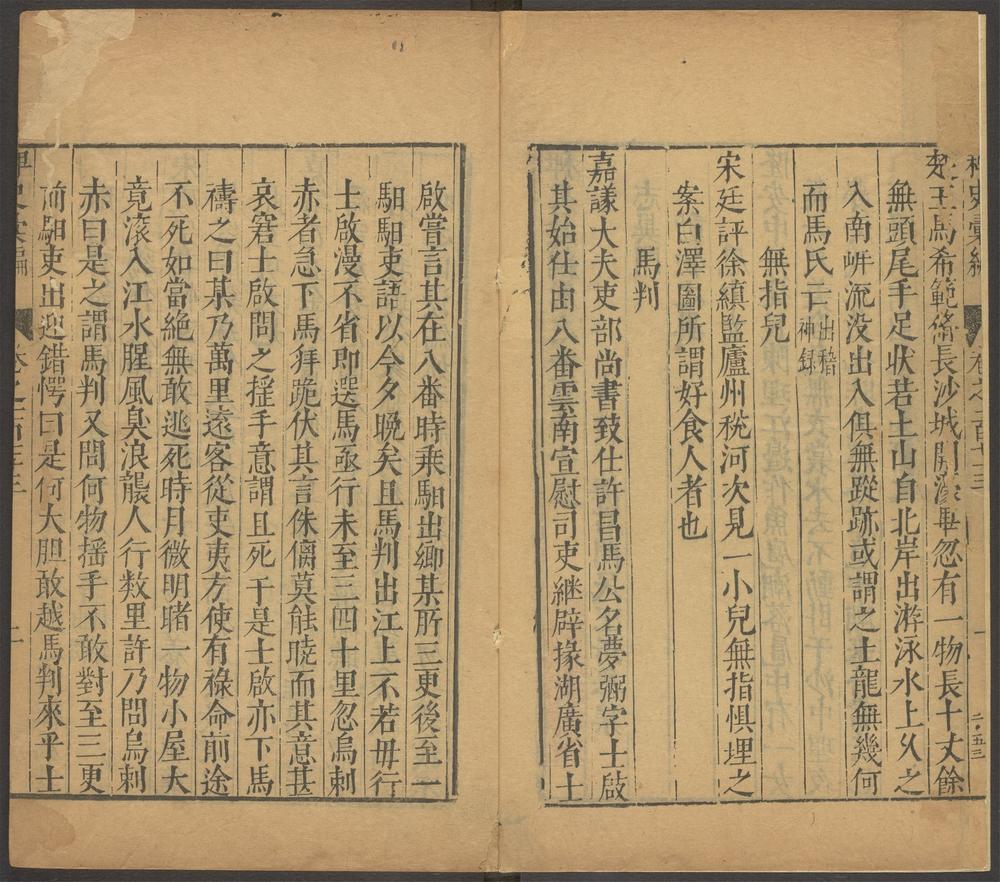 稗史彙編 卷之一百七十三 一
楚王馬希範修長沙城開濠畢忽有一物長十丈餘
無頭尾手足狀若土山自北岸出游泳水上久之
入南岸而没出入俱無蹤跡或謂之土龍無幾何
而馬氏亡出稽神録
無指兒
宋廷評徐縝監廬州稅河次見一小兒無指惧埋之
案白澤圖所謂好食人者也
馬判
嘉議大夫吏部尚書致仕許昌馬公名夢弼字士啟
其始仕由八番雲南宣慰司吏継辟掾湖廣省士
啟嘗言其在八番時乗馹出鄉某所三更後至一
馹馹吏語以今夕晚矣且馬判出江上不若毋行
士啟漫不省即選馬亟行未至三四十里忽烏剌
赤者急下馬拜跪伏其言侏𠌯莫能曉而其意甚
哀窘士啟問之揺手意謂且死于是士啟亦下馬
禱之曰某乃萬里遠客從吏夷方使有祿命前途
不死如當絶無敢逃死時月微明睹一物小屋大
竟滚入江水腥風臭浪襲人行数里許乃問烏剌
赤曰是之謂馬判又問何物揺手不敢對至三更
前馹吏出迎錯愕曰是何大胆敢越馬判來乎士